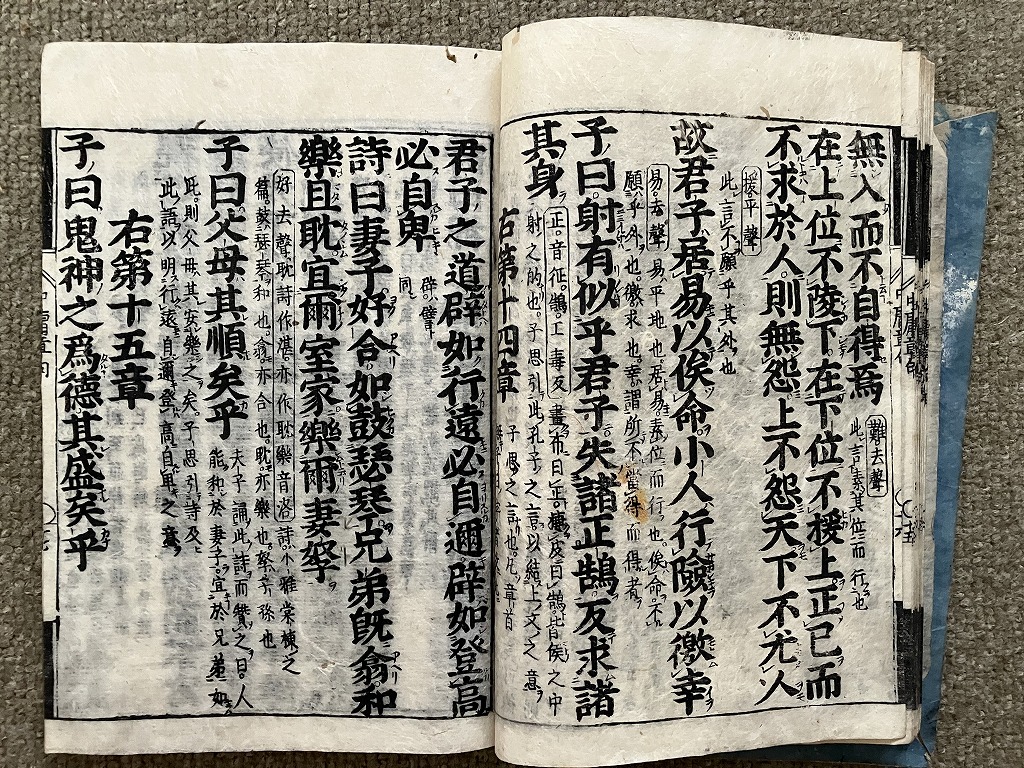 無入而不自得焉 難去聲 此言素其位而行也
在上位不陵下在下位不援上正己而
不求於人則無怨上不怨天下不尤人
援平聲 此言不願乎其外也
故君子居易以俟命小人行險以徼幸
易去聲 易平地也居易素位而行也俟命不
願乎外也徼求也幸謂所不當得而得者
子曰射有似乎君子失諸正鵠反求諸
其身 正音征鵠工毒反 畫布曰正棲皮曰鵠皆侯之中
射之的也子思引此孔子之言以結上文之意
右第十四章 子思之言也凡章首
君子之道辟如行遠必自邇辟如登高
必自卑 辟譬同
詩曰妻子好合如鼓瑟琴兄弟既翕和
樂且耽宜爾室家樂爾妻孥
好去聲耽詩作湛亦作耽樂音洛 詩小雅棠棣之
篇鼓瑟琴和也翕亦合也耽亦樂也孥子孫也
子曰父母其順矣乎 夫子誦此詩而贊之曰人能和於妻子宜於兄弟如
此則父母其安樂之矣子思引詩及
此語以明行遠自邇登高自卑之意
右第十五章
子曰鬼神之爲德其盛矣乎